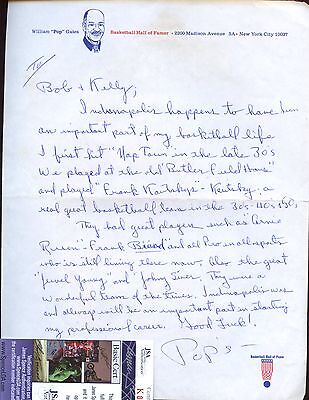 William "Pop" Gates
Basketball Hall of Famer - 2300 Madison Avenue 3A - New York City 10037
To
Bob & Kelly,
Indianapolis happens to have been
an important part of my basketball life
I first hit "Nap Town" in the late 30s
We played at the old "Butler Field House"
and played "Frank Kautskys - Kautsky, a
real great basketball team in the 30s-40s+50s,
They had great players such as "Arnie
Risen" - Frank Baird and all Pro in all sports
who is still living there now, also the great
"Jewel Young" and "Johny
They were a
wonderful team of the times. Indianapolis was
and always will be an important part in starting
my professional career. "Good Luck".
Pop's -
Basketball Hall of Fame
JSA
Basic Cert